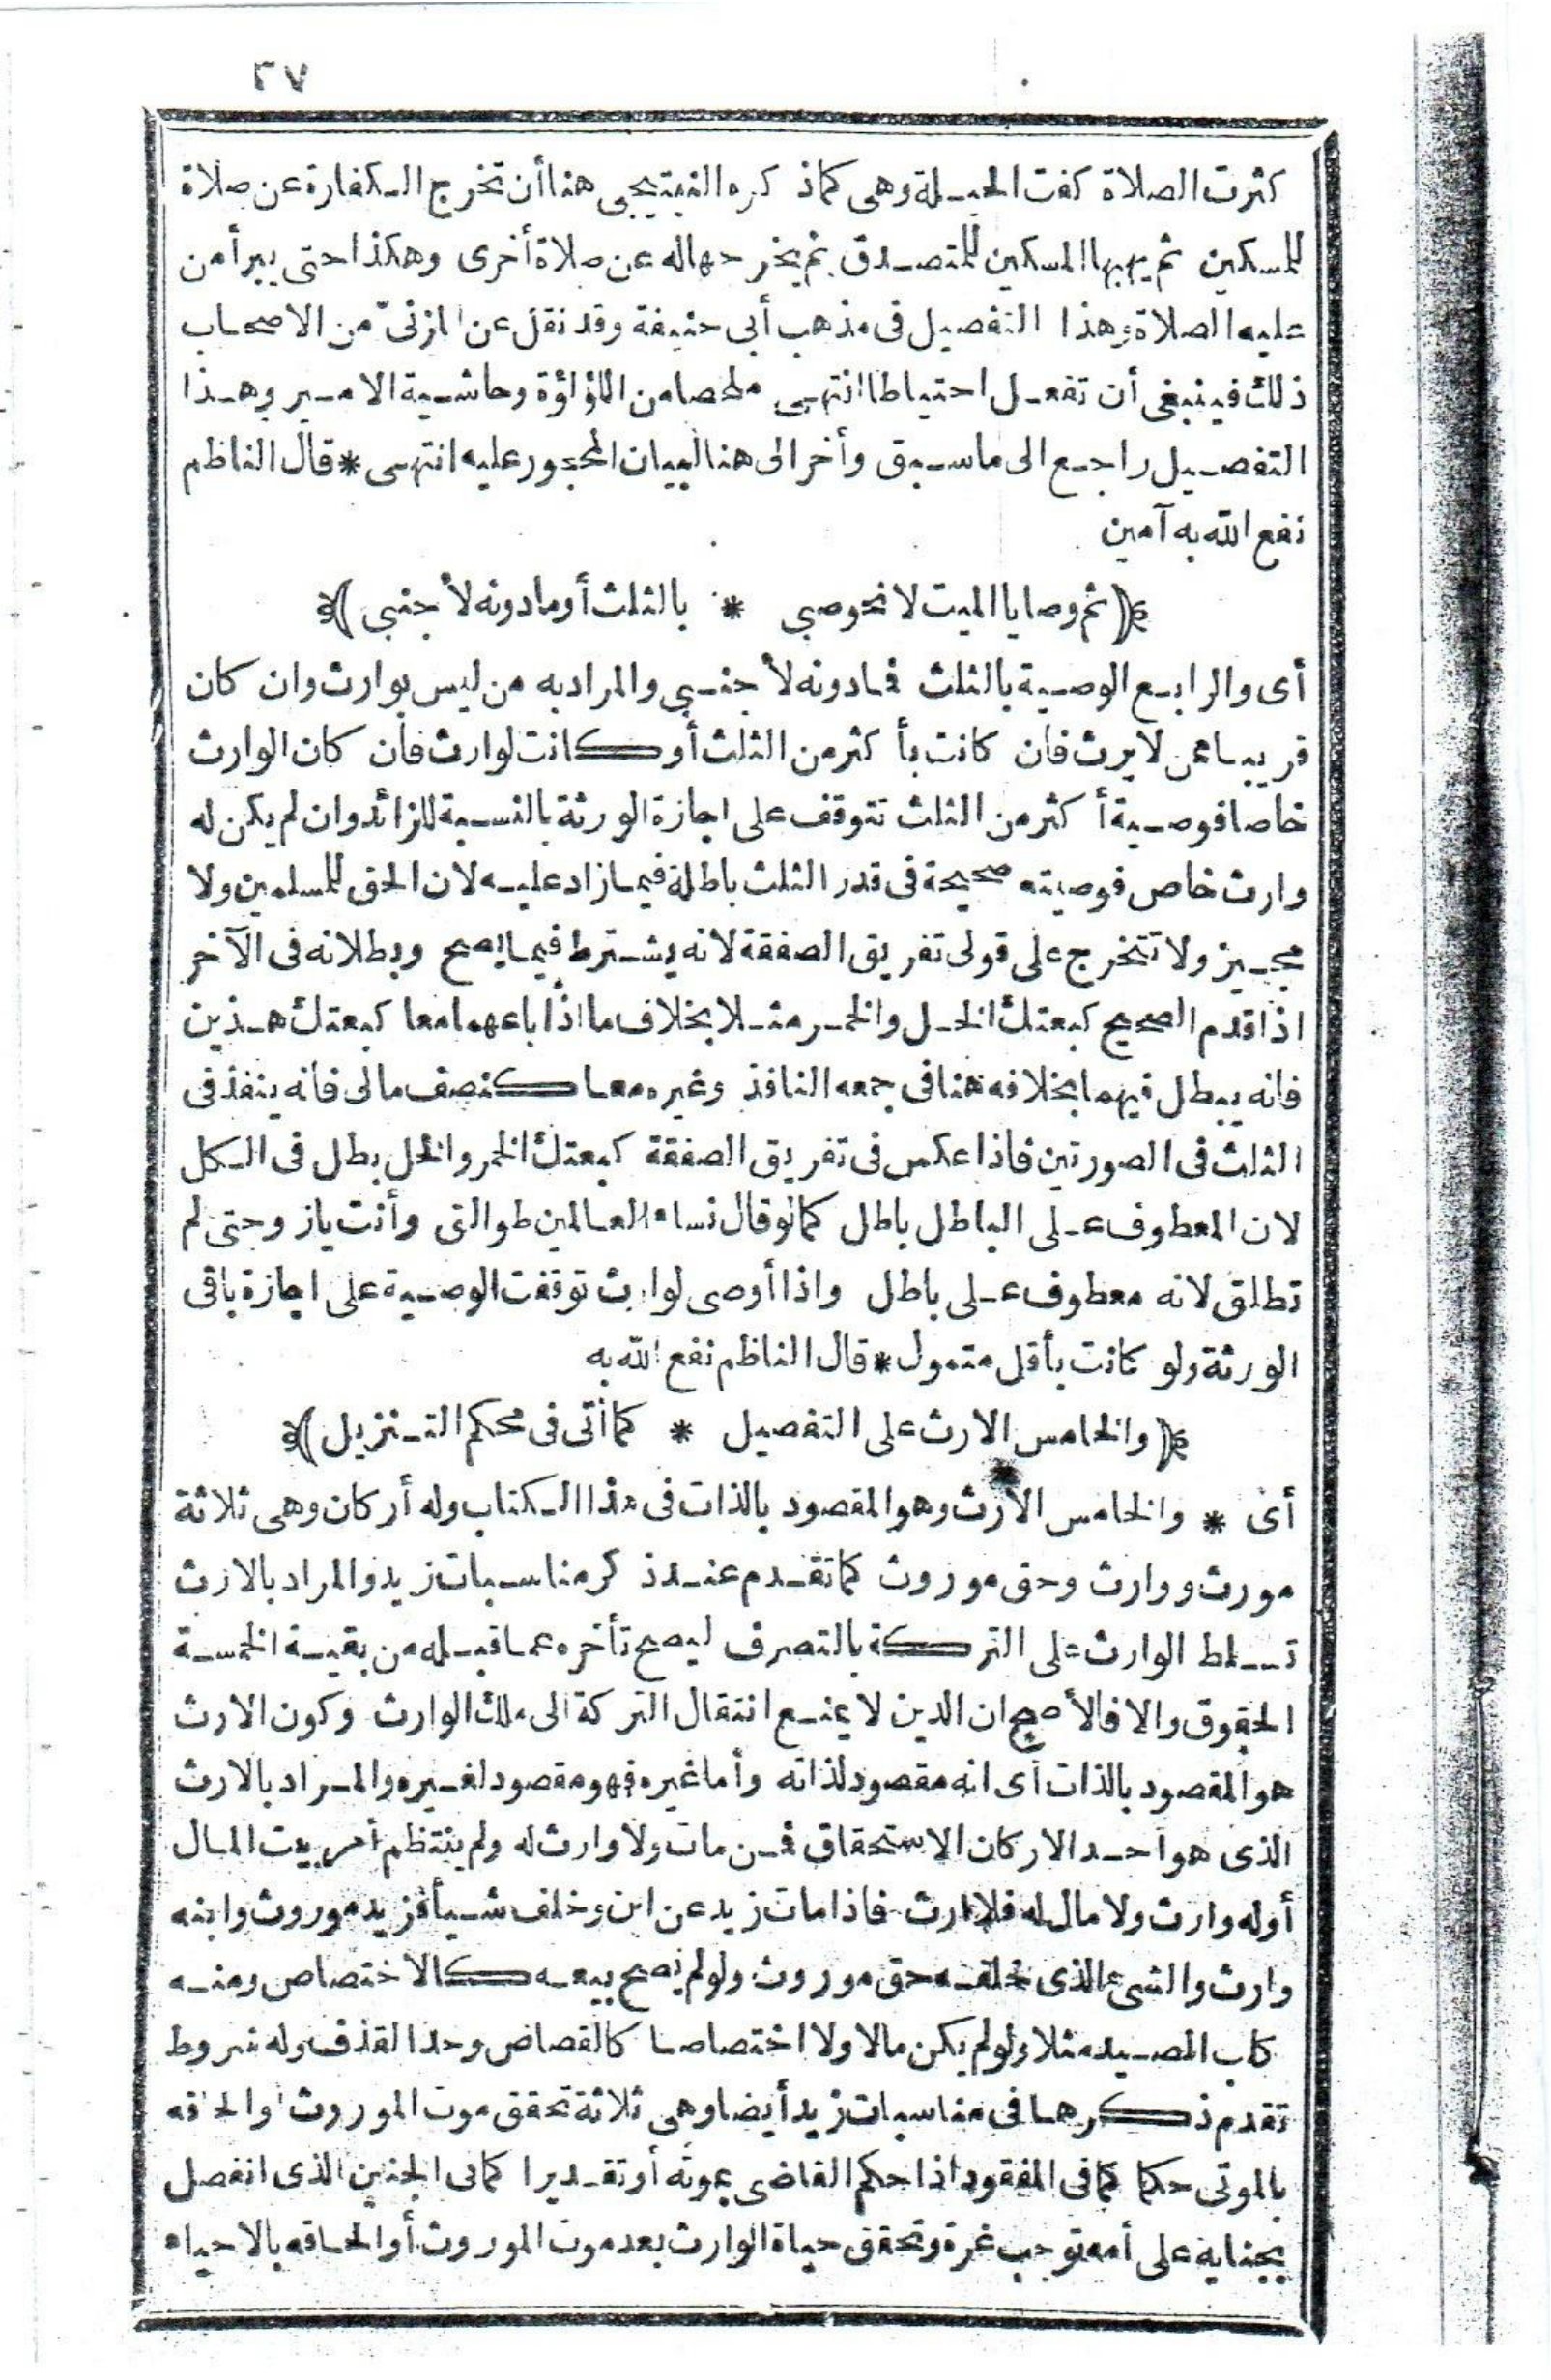 ٢٧
كثرت الصلاة كفت الحيلة وهى كماذ كره النبتيجى هنا أن تخرج الكفارة عن صلاة
للمسكين ثم يهبها المسكين للمتصدق ثم يخرجها له عن صلاة أخرى وهكذا حتى يبرأ من
عليه الصلاة وهذا التفصيل فى مذهب أبى حنيفة وقد نقل عن المزنىّ من الاصحاب
ذلك فينبغى أن تفعل احتياطا انتهى ملخصا من اللؤلؤة وحاشية الامير وهذا
التفصيل راجع الى ماسبق وأخر الى هنا لبيان المحجور عليه انتهى * قال الناظم
نفع الله به آمين
﴿ثم وصايا الميت لا نحو صبى * بالثلث أو مادونه لأجنبى﴾
أى والرابع الوصية بالثلث فمادونه لأجنبى والمراد به من ليس بوارث وان كان
قريبا ممن لايرث فان كانت بأكثر من الثلث أو كانت لوارث فان كان الوارث
خاصا فوصية أكثر من الثلث تتوقف على اجازة الورثة بالنسبة للزائد وان لم يكن له
وارث خاص فوصيته صحيحة فى قدر الثلث باطلة فيما زاد عليه لان الحق للمسلمين ولا
مجيز ولا تتخرج على قولى تفريق الصفقة لانه يشترط فيما يصح وبطلانه فى الآخر
اذا قدم الصحيح كبعتك الخل والخمر مثلا بخلاف ما اذا باعهما معا كبعتك هذين
فانه يبطل فيهما بخلافه هنا فى جمعه النافذ وغيره معا كنصف مالى فانه ينفذ فى
الثلث فى الصورتين فاذا عكس فى تفريق الصفقة كبعتك الخمر والخل بطل فى الكل
لان المعطوف على الباطل باطل كما لو قال نساء العالمين طوالق وأنت يازوجتى لم
تطلق لانه معطوف على باطل واذا أوصى لوارث توقفت الوصية على اجازة باقى
الورثة ولو كانت بأقل متمول * قال الناظم نفع الله به
﴿والخامس الارث على التفصيل * كما أتى فى محكم التنزيل﴾
أى * والخامس الارث وهو المقصود بالذات فى هذا الكتاب وله أركان وهى ثلاثة
مورث ووارث وحق موروث كما تقدم عند ذكر مناسبات زيد والمراد بالارث
تسلط الوارث على التركة بالتصرف ليصح تأخره عما قبله من بقية الخمسة
الحقوق والا فالأصح ان الدين لا يمنع انتقال التركة الى ملك الوارث وكون الارث
هو المقصود بالذات أى انه مقصود لذاته وأما غيره فهو مقصود لغيره والمراد بالارث
الذى هو أحد الاركان الاستحقاق فمن مات ولا وارث له ولم ينتظم أمر بيت المال
أوله وارث ولا مال له فلا ارث فاذا مات زيد عن ابن وخلف شيأ فزيد موروث وابنه
وارث والشىء الذى خلفه حق موروث ولو لم يصح بيعه كالاختصاص ومنه
كلب الصيد مثلا ولو لم يكن مالا ولا اختصاصا كالقصاص وحد القذف وله شروط
تقدم ذكرها فى مناسبات زيد أيضا وهى ثلاثة تحقق موت الموروث أو الحاقه
بالموتى حكما كما فى المفقود اذا حكم القاضى بموته أو تقديرا كما فى الجنين الذى انفصل
بجناية على أمه توجب غرة وتحقق حياة الوارث بعد موت الموروث أو الحاقه بالاحياء